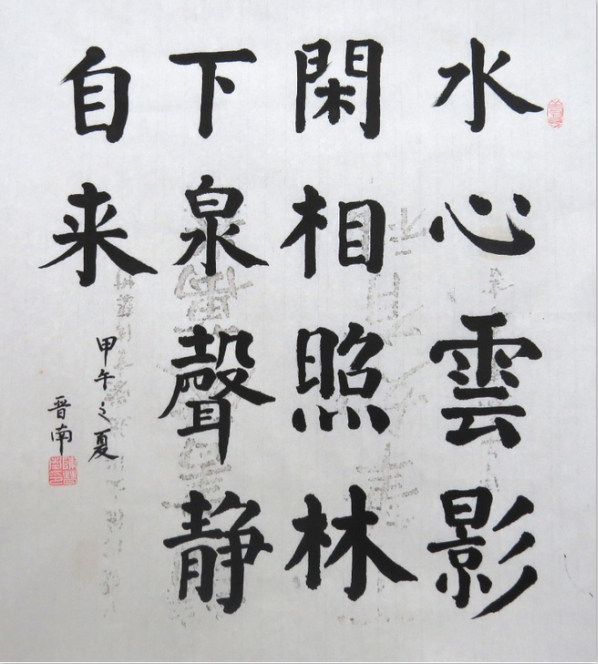 水心雲影
閑相照林
下泉聲静
自来
甲午之夏
晋南